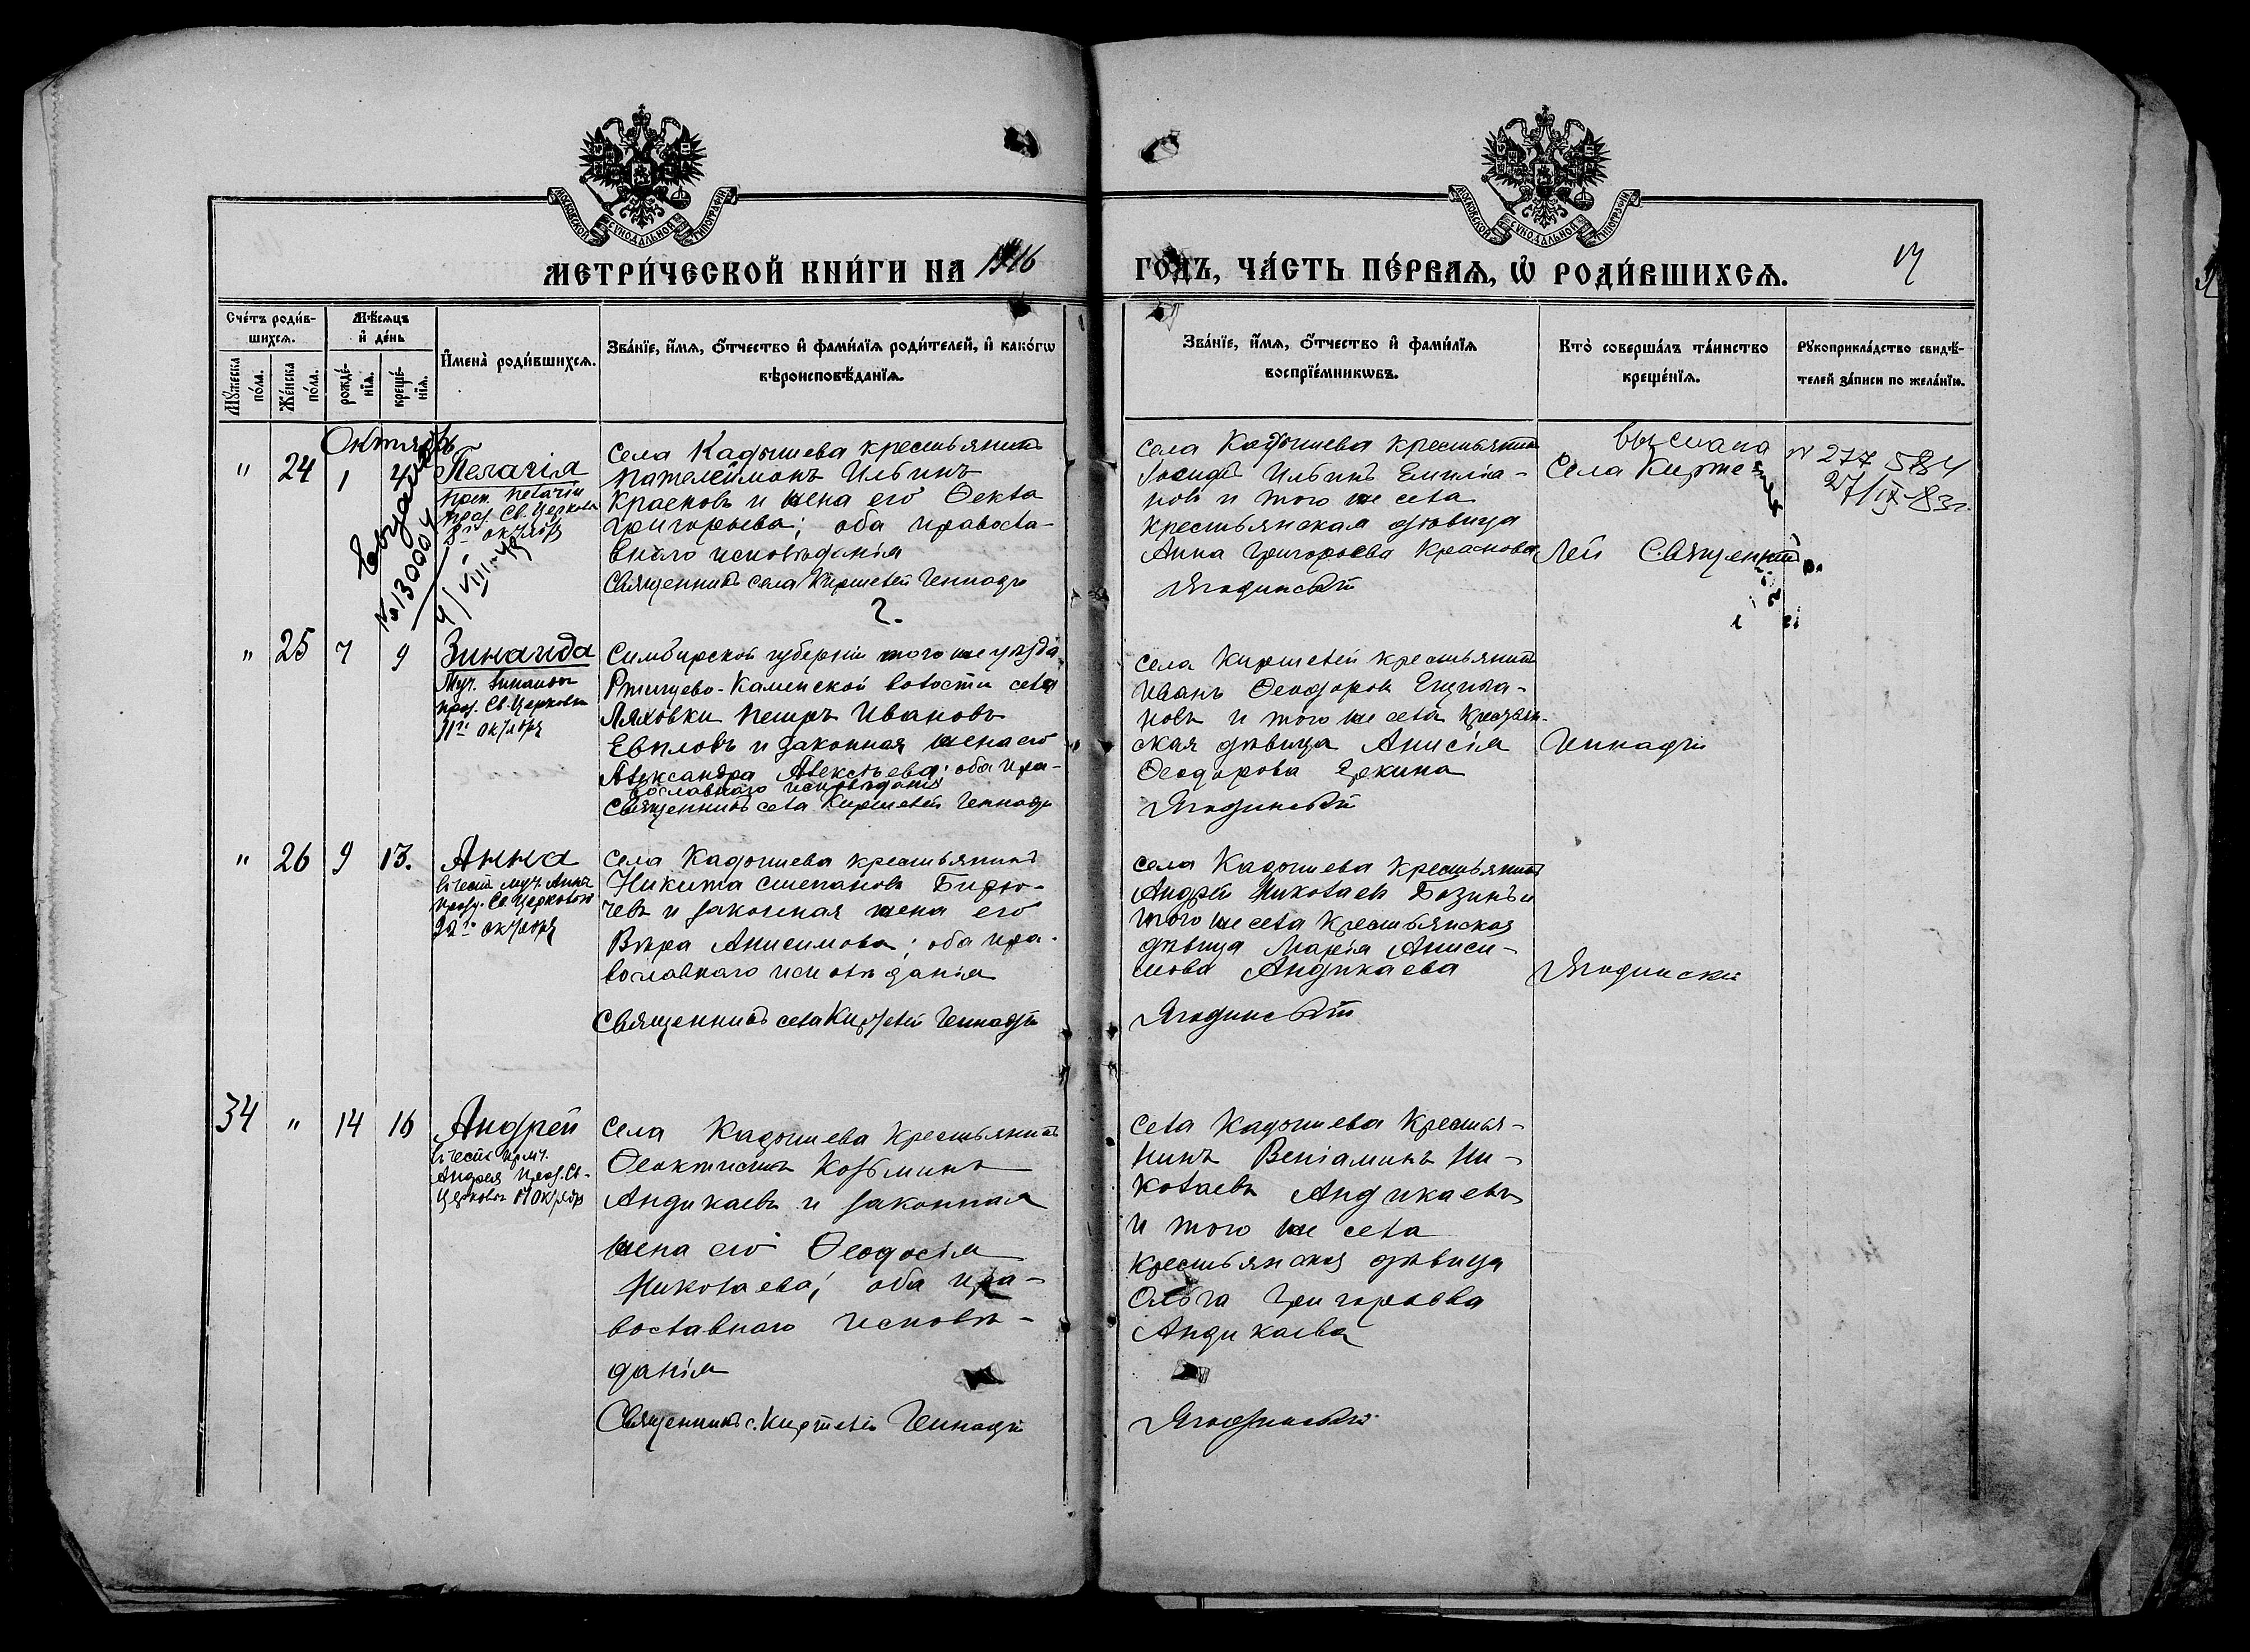 МОСКОВСКОЙ СѴНОДАЛЬНОЙ ТИПОГРАФІИ
МОСКОВСКОЙ СѴНОДАЛЬНОЙ ТИПОГРАФІИ
МЕТРИ́ЧЕСКОЙ КНИ́ГИ НА 1916
ГО́ДЪ, ЧА́СТЬ ПЕ́РВАѦ, Ѡ҆ РОДИ́ВШИХСѦ.
Сче́тъ роди́в-
шихсѧ.
Мѣ́сѧцъ
и҆ де́нь
Мꙋ́жеска
по́ла.
Же́нска
по́ла.
рожде́-
нїѧ.
креще́-
нїѧ.
И҆мена̀ роди́вшихсѧ.
Зва́нїе, и҆́мѧ, ѻ҆́тчество и҆ фами́лїѧ роди́телей, и҆ како́гѡ
вѣроисповѣ́данїѧ.
Зва́нїе, и҆́мѧ, ѻ҆́тчество и҆ фами́лїѧ
воспрїе́мникѡвъ.
Кто̀ соверша́лъ та́инство
креще́нїѧ.
Рꙋкоприкла́дство свидѣ́-
телей за́писи по жела́нїю.
Октябрь
" 24 1 4
Пелагія
преп. Пелагіи
праз. Св. Церковь
8го октября
№ 130004
4/VIII-49
Села Кадышева крестьянинъ
Пателеймонъ Ильинъ
Красновъ и жена его Ѳекла
Григорьева; оба правосла-
внаго исповѣданія
Священникъ села Киржелей Геннадій
Села Кадышева крестьянинъ
Іосифъ Ильинъ Емилiа-
новъ и того же села
крестьянская дѣвица
Анна Григорьева Краснова
Ягодинскій
выслана
Села Кирже
лей Священникъ
N 277 584
27/IX-83г.
2.
" 25 7 9
Зинаида
Муч. Зинаиды
праз. Св. Церковь
11го октября
Симбирской губерніи того же уѣзда
Ртищево-Каменской волости села
Ляховки Петръ Ивановъ
Евпловъ и законная жена его
Александра Алексѣева; оба пра-
вославнаго исповѣданія
Священникъ села Киржелей Геннадій
Села Киржелей крестьянинъ
Иванъ Ѳеодоровъ
новъ и того же села крестьян-
ская дѣвица Анисія
Ѳеодорова Еркина
Ягодинскій
Геннадій
" 26 9 13.
Анна
въ честь муч. Анны
празд. Св. Церковью
22го октября
Села Кадышева крестьянинъ
Никита Степановъ Бирю-
чевъ и законная жена его
Вѣра Анисимова; оба пра-
вославнаго исповѣданія
Священникъ села Киржелей Геннадій
Села Кадышева крестьянинъ
Андрей Николаевъ Бозинъ и
того же села крестьянская
дѣвица Марія Аниси-
мова Андикаева
Ягодинскій
Ягодинскій
34 " 14 16
Андрей
въ честь прмч.
Андрея праз. Св.
Церковью 17 октября
Села Кадышева крестьянинъ
Ѳеоктистъ Козьминъ
Андикаевъ и законная
жена его Ѳеодосія
Николаева; оба пра-
вославнаго исповѣ-
данія
Священникъ с. Киржелей Геннадій
Села Кадышева крестья-
нинъ Веніаминъ Ни-
колаевъ Андикаевъ
и того же села
крестьянская дѣвица
Ольга Григорьева
Андикаева
Ягодинскій